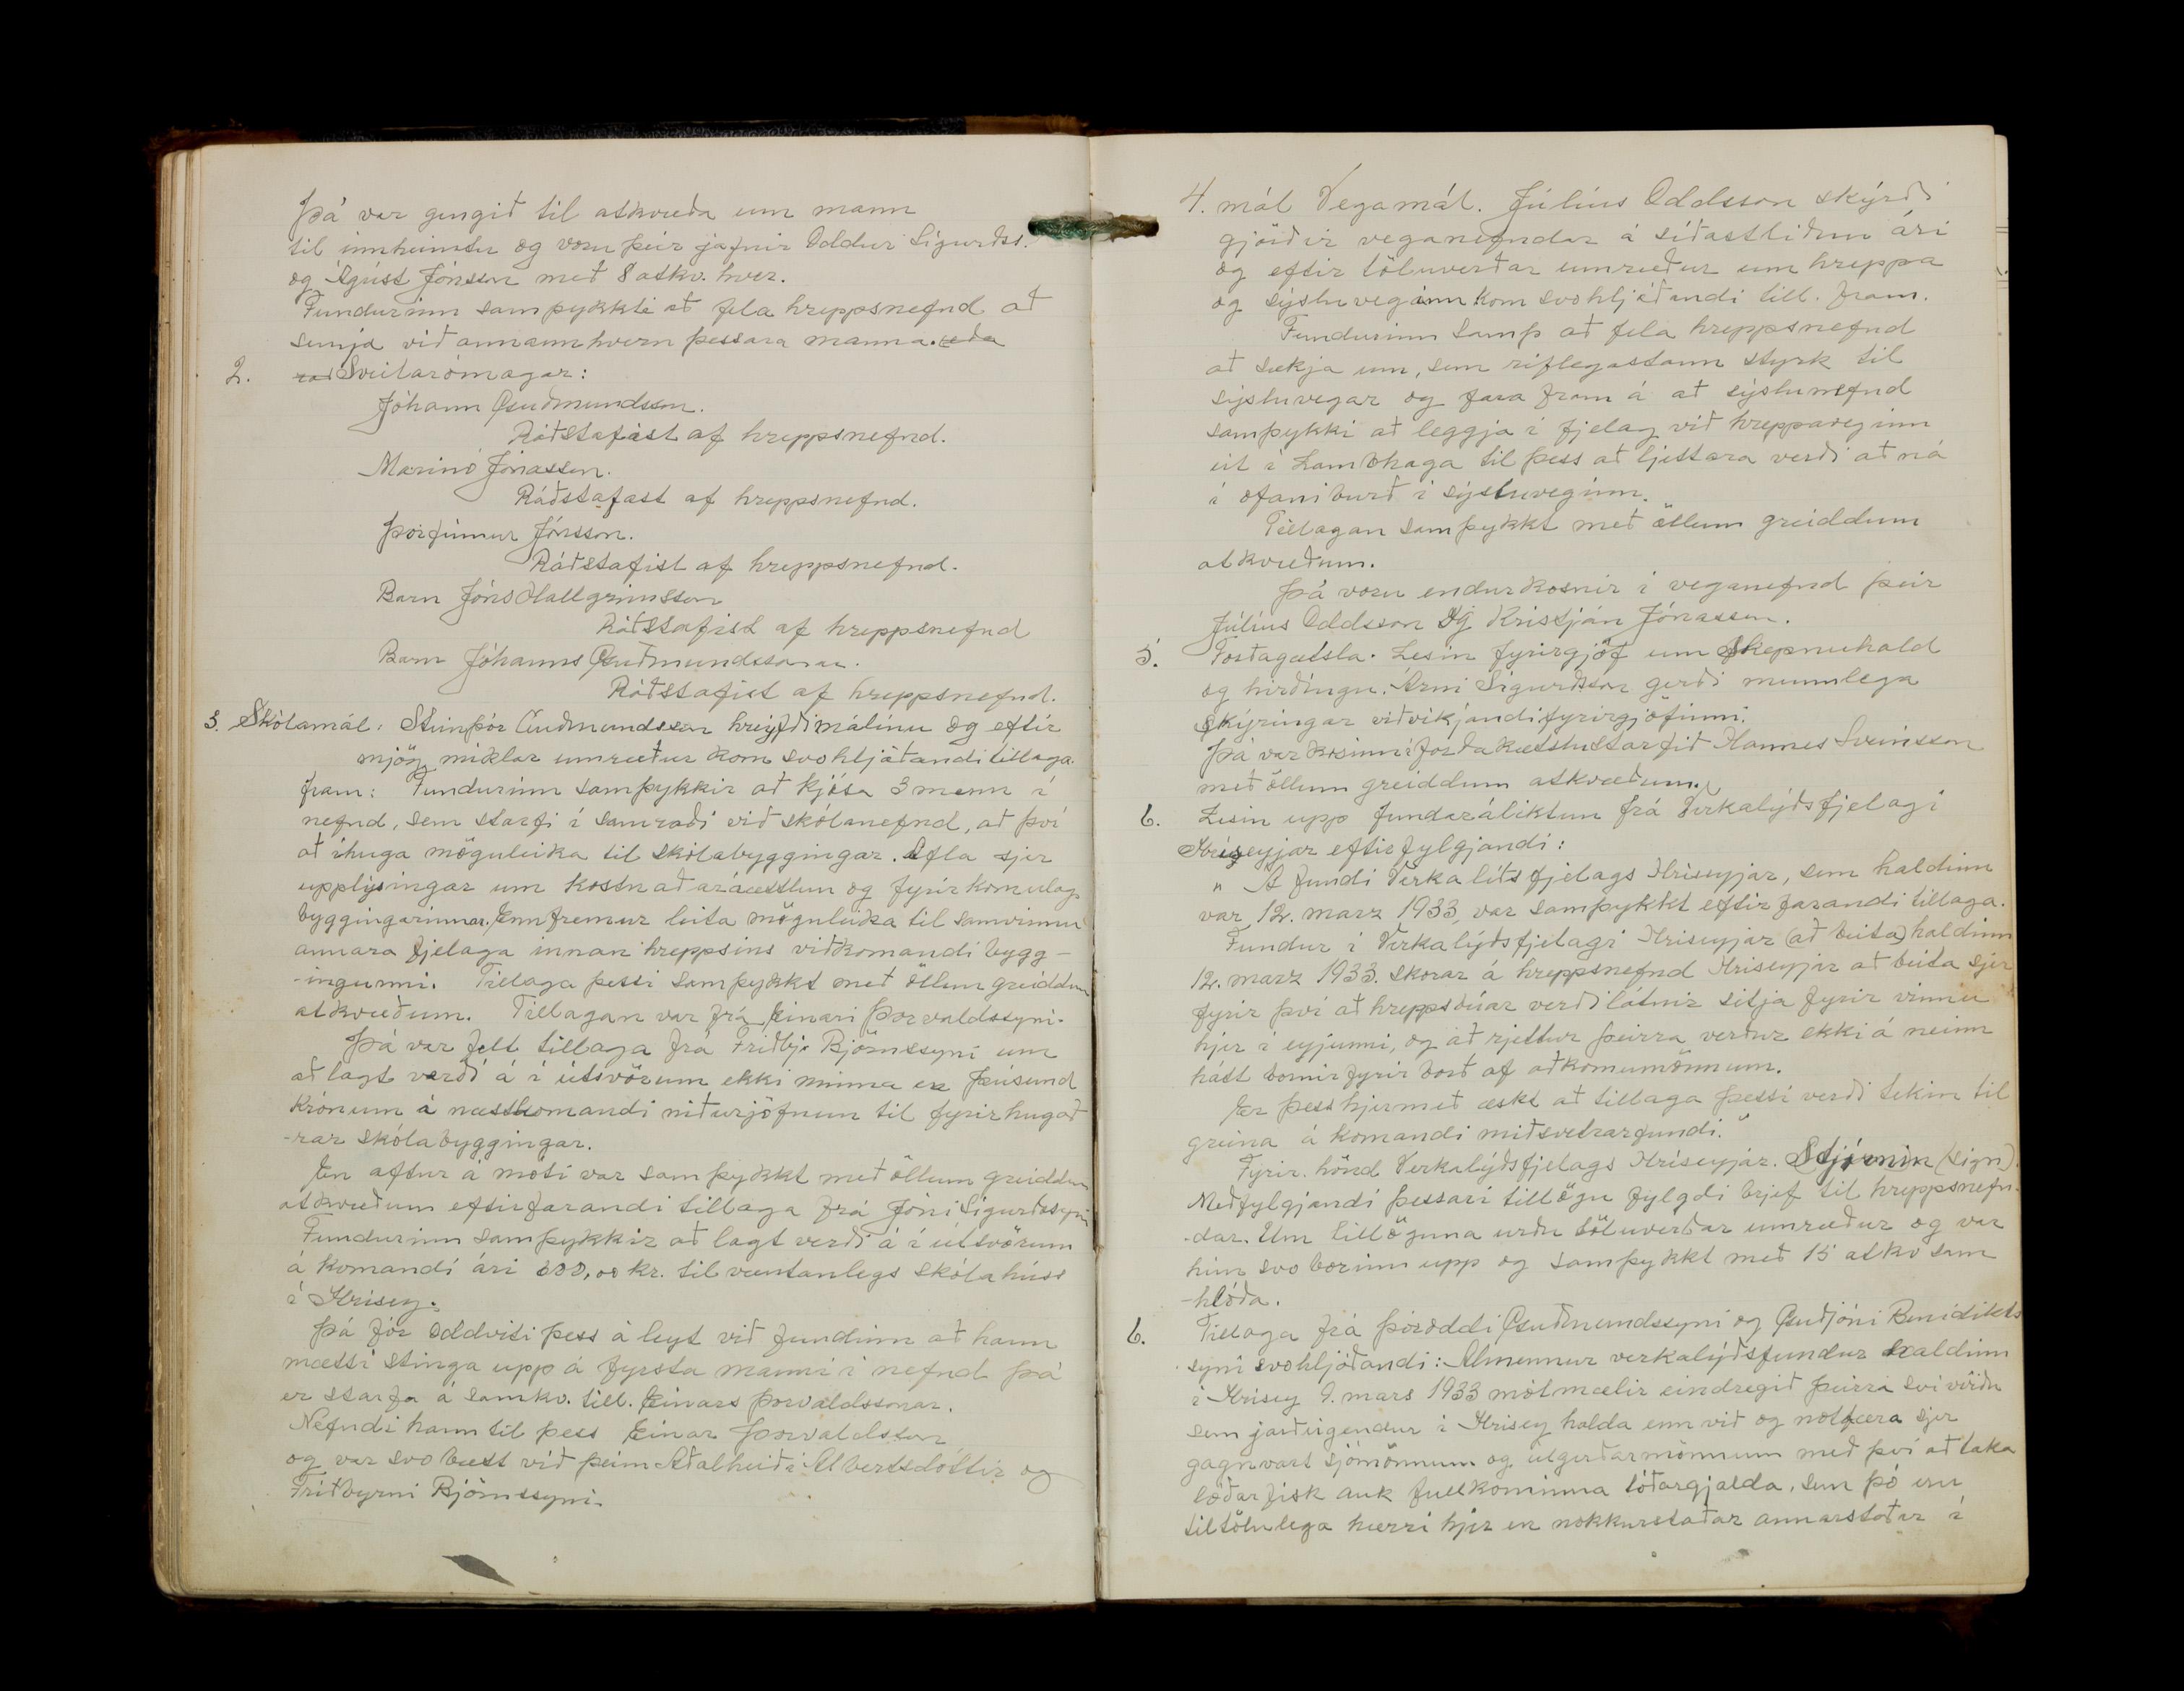 Þá var gengið til atkvæða um mann
til innheimtu og voru þeir jafnir Oddur Sigurðss.
og Ágúst Jónsson með 8 atkv. hver.
Fundurinn samþykkti að fela hreppsnefnd að
semja við annannhvern þessara manna. eða
2. Sveitarómagar:
Jóhann Guðmundsson.
Ráðstafast af hreppsnefnd.
Marinó Jónasson.
Ráðstafast af hreppsnefnd.
Þorfinnur Jónsson.
Ráðstafist af hreppsnefnd.
Barn Jóns Hallgrímsson
Ráðstafist af hreppsnefnd
Barn Jóhanns Guðmundssonar.
Ráðstafist af hreppsnefnd.
3. Skólamál: Steinþór Guðmundsson hreyfði málinu og eftir
mjög miklar umræður kom svohljóðandi tillaga
fram: Fundurinn samþykkir að kjósa 3 menn í
nefnd, sem starfi í samráði við skólanefnd, að því
að íhuga möguleika til skólabyggingar. Afla sjer
upplýsingar um kostnaðaráætlun og fyrirkomulag
byggingarinnar. Ennfremur leita möguleika til samvinnu
annara fjelaga innan hreppsins viðkomandi bygg-
-ingunni. Tillaga þessi samþykkt með öllum greiddum
atkvæðum. Tillagan var frá Einari Þorvaldssyni.
Þá var felt tillaga frá Friðbj. Björnssyni um
að lagt verði á í útsvörum ekki minna en þúsund
krónum á næstkomandi niðurjöfnun til fyrirhugað
-rar skólabyggingar.
En aftur á móti var samþykkt með öllum greiddum
atkvæðum eftirfarandi tillaga frá Jóni Sigurðssyni
Fundurinn samþykkir að lagt verði á í útsvörum
á komandi ári 300,00 kr. til væntanlegs skólahúss
í Hrísey.
Þá fór oddviti þess á leyt við fundinn að hann
mætti stinga upp á fyrsta manni í nefnd þá
er starfa á samkv. till. Einars Þorvaldssonar.
Nefndi hann til þess Einar Þorvaldsson
og var svo bætt við þeim Aðalheiði Albertsdóttir og
Friðbyrni Björnssyni.
4. mál Vegamál. Júlíus Oddsson skýrði
gjörðir veganefndar á síðastliðnu ári
og eftir töluverðar umræður um hreppa
og sýsluveginn kom svohljóðandi till. fram.
Fundurinn samþ að fela hreppsnefnd
að sækja um, sem riflegastann styrk til
sýsluvegar og fara fram á að sýslunefnd
samþykki að leggja í fjelag við hreppaveginn
út í Lambhaga til þess að ljettara verði að ná
í ofaníburð í sýsluveginn.
Tillagan samþykkt með öllum greiddum
atkvæðum.
Þá voru endurkosnir í veganefnd þeir
Júlíus Oddsson og Kristján Jónasson.
5. Forðagætsla. Lesin fyrirgjöf um skepnuhald
og hirðingu. Árni Sigurðsson gerði munnlega
skýringar viðvíkjandi fyrirgjöfinni.
Þá var kosinn í forðakætslustarfið Hannes Sveinsson
með öllum greiddum atkvæðum.
6. Lesin upp fundarályktun frá Verkalýðsfjelagi
Hríseyjar eftirfylgjandi:
" Á fundi Verkalíðsfjelags Hríseyjar, sem haldinn
var 12. marz 1933, var samþykkt eftirfarandi tillaga.
Fundur í Verkalýðsfjelagi Hríseyjar (að beita) haldinn
12. marz 1933. skorar á hreppsnefnd Hríseyjar að beita sjer
fyrir því að hreppsbúar verði látnir sitja fyrir vinnu
hjer í eyjunni, og að rjettur þeirra verður ekki á neinn
hátt bornir fyrir borð af aðkomumönnum.
Er þess hjermeð æskt að tillaga þessi verði tekin til
greina á komandi miðsvetrarfundi."
Fyrir hönd Verkalýðsfjelags Hríseyjar. Stjórnin (sign).
Meðfylgjandi þessari tillögu fylgdi brjef til hreppsnefn-
-dar. Um tillöguna urðu töluverðar umræður og var
hún svo borinn upp og samþykkt með 15 atkv sam
-hlóða.
6. Tillaga frá Þóroddi Guðmundssyni og Guðjóni Benidikts
syni svohljóðandi: Almennur verkalýðsfundur haldinn
í Hrísey 9. mars 1933 mótmælir eindregið þeirra svívirðu
sem jarðeigendur í Hrísey halda enn við og notfæra sjer
gagnvart sjómönnum og útgerðarmönnum með því að taka
lóðarfisk auk fullkominna lóðargjalda, sem þó eru
tiltölulega hærri hjer en nokkurstaðar annarstaðar í